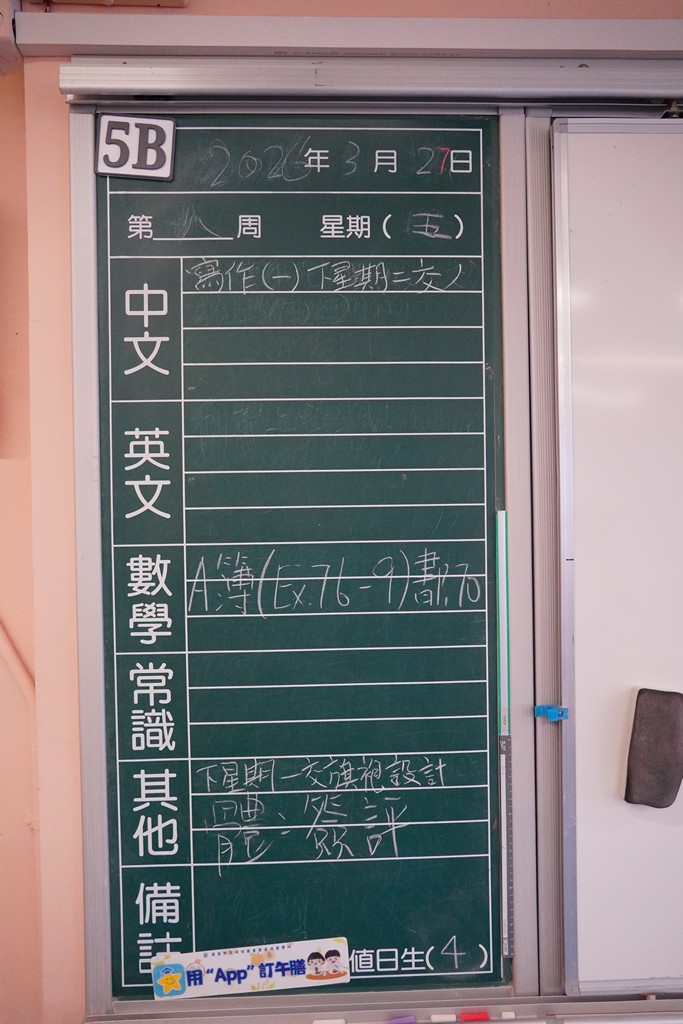 5B
2026年3月27日
第八周 星期(五)
中文
寫作(一)下星期二交
英文
數學
A簿(Ex.76-9)書P.70
常識
其他
下星期一交旗袍設計
體:簽評
備註
用“App”訂午膳
值日生(4)